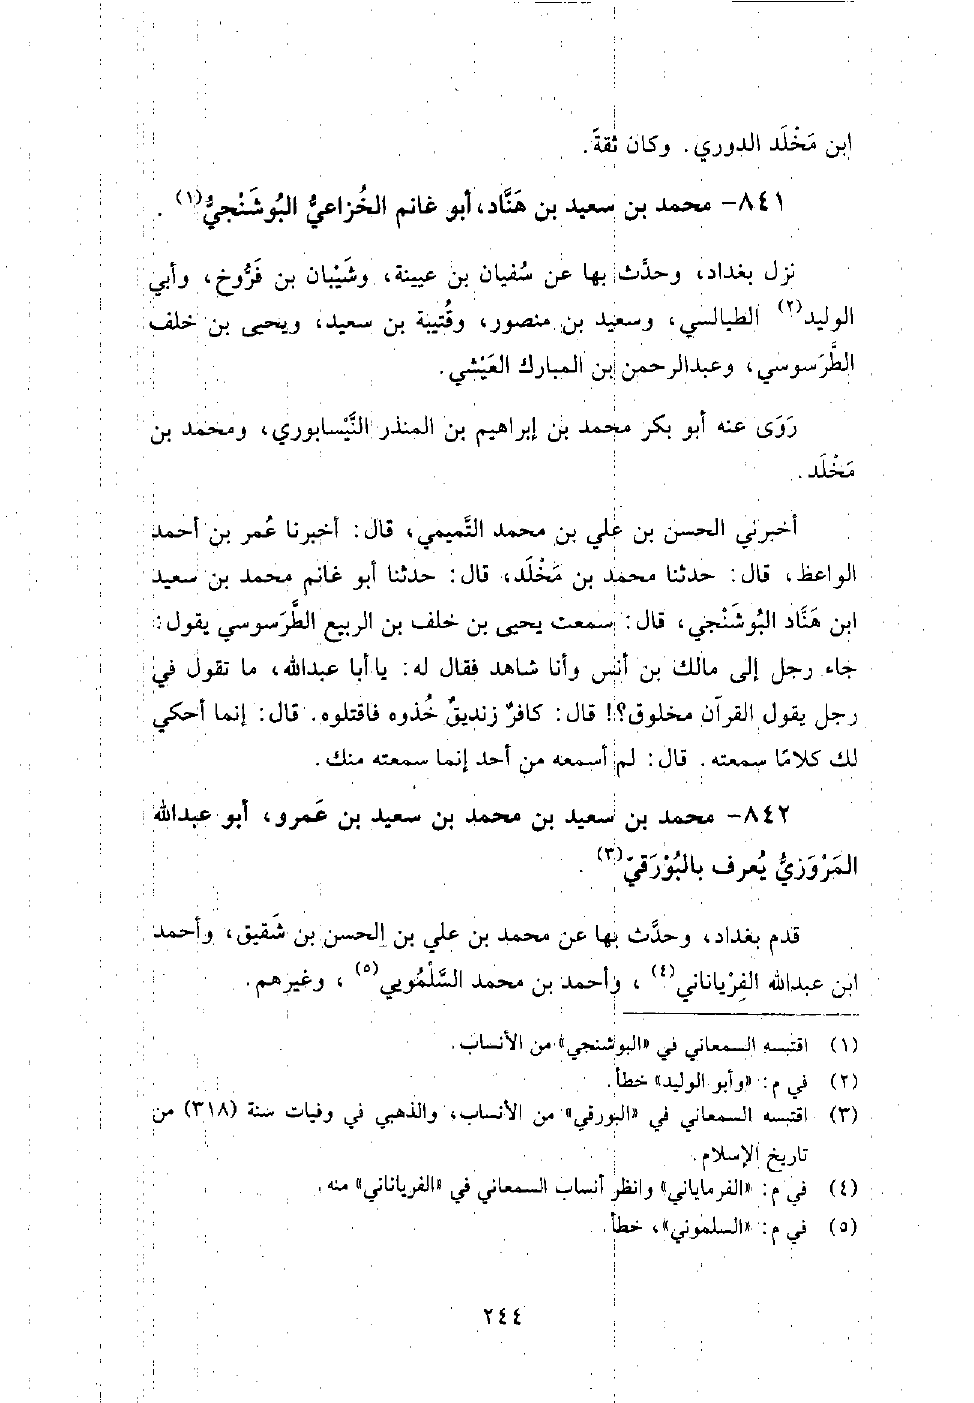 ابن مَخْلَد الدوري. وكان ثقةً.
٨٤١- محمد بن سعيد بن هَنَّاد، أبو غانم الخُزاعيُّ البُوشَنْجيُّ(١).
نزل بغداد، وحدَّث بها عن سُفيان بن عيينة، وشَيْبان بن فَرُّوخ، وأبي
الوليد(٢) الطيالسي، وسعيد بن منصور، وقُتيبة بن سعيد، ويحيى بن خلف
الطَّرَسوسي، وعبدالرحمن بن المبارك العَيْشي.
رَوَى عنه أبو بكر محمد بن إبراهيم بن المنذر النَّيْسابوري، ومحمد بن
مَخْلَد.
أخبرني الحسن بن علي بن محمد التَّميمي، قال: أخبرنا عُمر بن أحمد
الواعظ، قال: حدثنا محمد بن مَخْلَد، قال: حدثنا أبو غانم محمد بن سعيد
ابن هَنَّاد البُوشَنْجي، قال: سمعت يحيى بن خلف بن الربيع الطَّرَسوسي يقول:
جاء رجل إلى مالك بن أنس وأنا شاهد فقال له: يا أبا عبدالله، ما تقول في
رجل يقول القرآن مخلوق؟! قال: كافرٌ زنديقٌ خُذوه فاقتلوه. قال: إنما أحكي
لك كلامًا سمعته. قال: لم أسمعه من أحد إنما سمعته منك.
٨٤٢- محمد بن سعيد بن محمد بن سعيد بن عَمرو، أبو عبدالله
المَرْوَزيُّ يُعرف بالبُوْرَقيّ(٣).
قدم بغداد، وحدَّث بها عن محمد بن علي بن الحسن بن شَقيق، وأحمد
ابن عبدالله الفِرْياناني(٤)، وأحمد بن محمد السَّلْمُويي(٥)، وغيرهم.
(١) اقتبسه السمعاني في «البوشنجي» من الأنساب.
(٢) في م: «وأبو الوليد» خطأ.
(٣) اقتبسه السمعاني في «البورقي» من الأنساب، والذهبي في وفيات سنة (٣١٨) من
تاريخ الإسلام.
(٤) في م: «الفرماياني» وانظر أنساب السمعاني في «الفرياناني» منه.
(٥) في م: «السلموني»، خطأ.
٢٤٤